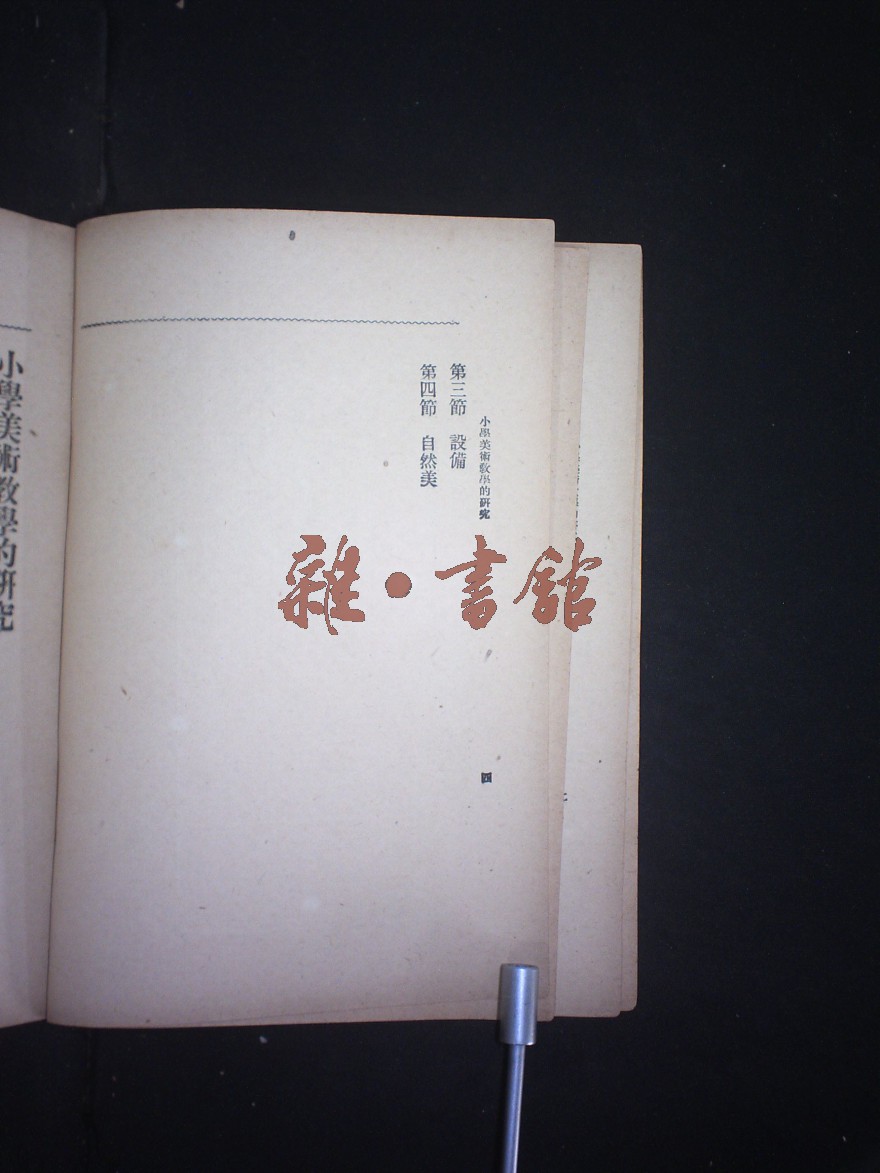 小學美術教學的研究
第三節 設備
第四節 自然美
四
小學美術教學的研究
雜·書館